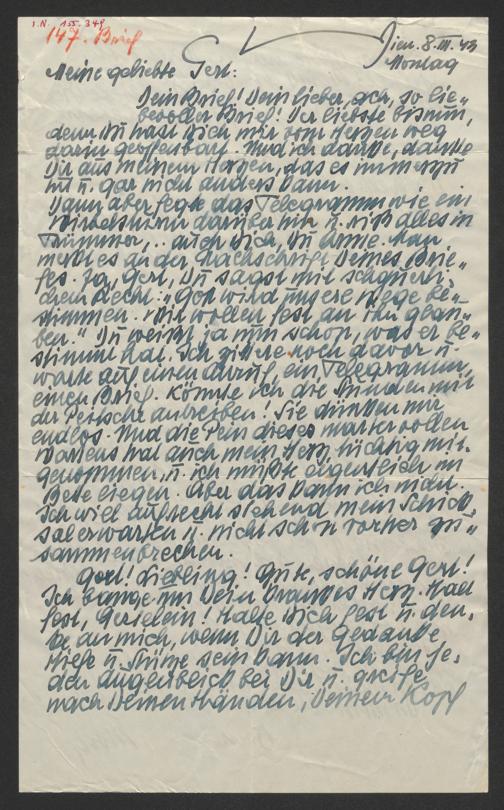 I.N. 155.349
147. Brief
Wien. 8. III. 43
Montag
Meine geliebte Gerl:
Dein Brief! Dein lieber, ach, so lie-
bevoller Brief! Der liebste bisnun,
denn Du hast Dich mir vom Herzen weg
darin geoffenbart. Und ich danke, danke
Dir aus meinem Herzen, das es immerzu
tut u. gar nicht anders kann.
Dann aber fegte das Telegramm wie ein
Wirbelsturm darüber hin u. riß alles in
Trümmer,.. auch Dich, Du Arme. Man
merkt es an der Nachschrift Deines Brie-
fes. Ja, Gerl, Du sagst mit schauerli-
chem Recht: „Gott wird unsere Wege be-
stimmen. Wir wollen fest an Ihn glau-
ben." Du weißt ja nun schon, was er be-
stimmt hat. Ich zittere noch davor u.
warte auf einen Anruf, ein Telegramm,
einen Brief. Könnte ich die Stunden mit
der Peitsche antreiben! Sie dünken mir
endlos. Und die Pein dieses martervollen
Wartens hat auch mein Herz tüchtig mit-
genommen, u. ich müßte eigentlich im
Bette liegen. Aber das kann ich nicht.
Ich will aufrecht stehend mein Schick-
sal erwarten u. nicht schon vorher zu-
sammenbrechen.
Gerl! Liebling! Gute, schöne Gerl!
Ich bange um Dein krankes Herz. Halt
fest, Gerlelein! Halte Dich fest u. den-
ke an mich, wenn Dir der Gedanke
Hilfe u. Stütze sein kann. Ich bin je-
den Augenblick bei Dir u. greife
nach Deinen Händen, Deinem Kopf